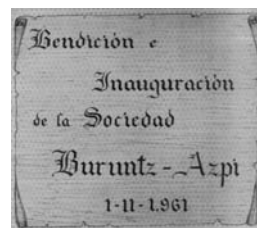 Bendición e
Inauguración
de la Sociedad
Buruntz-Azpi
1-11-1.961